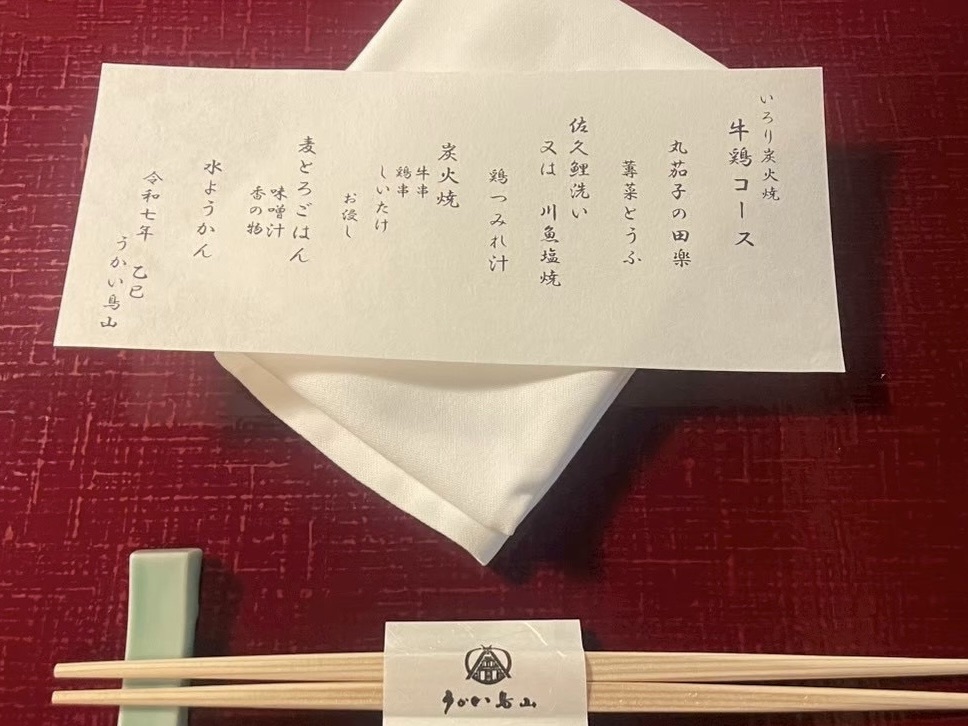 いろり炭火焼
牛鶏コース
丸茄子の田楽
蓴菜とうふ
佐久鯉洗い
又は 川魚塩焼
鶏つみれ汁
炭火焼
牛串
鶏串
しいたけ
お浸し
麦とろごはん
味噌汁
香の物
水ようかん
令和七年 乙巳
うかい鳥山
うかい鳥山